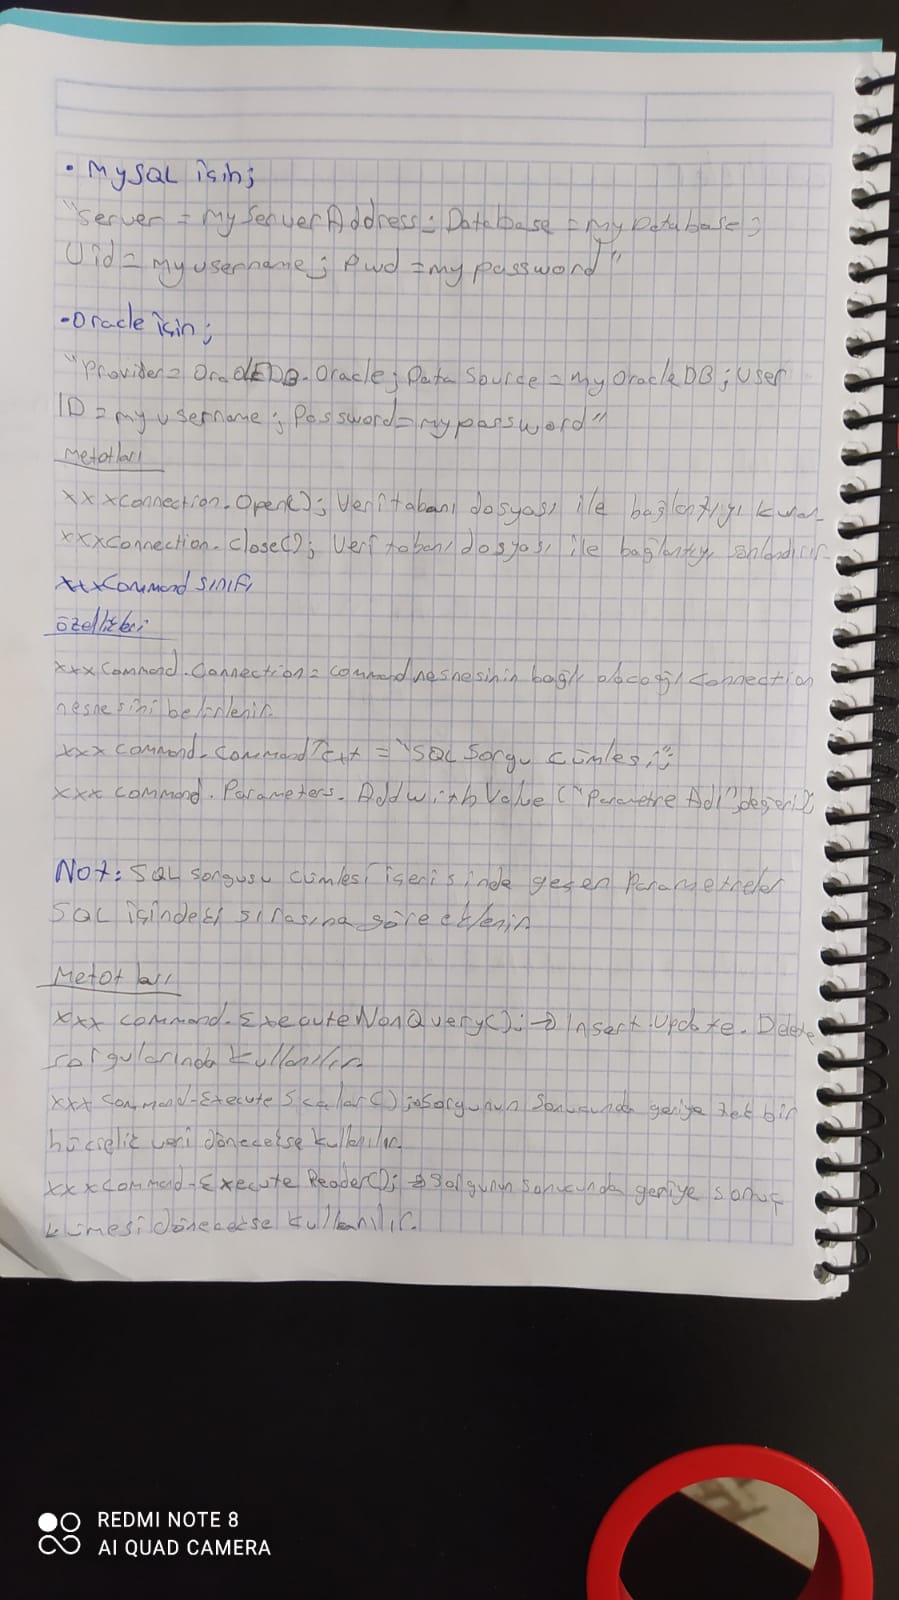 • MySQL için;
"Server = MyServerAddress; Database = MyDatabase;
Uid = myusername; Pwd = mypassword"
- Oracle için;
"Provider= OraOLEDB.Oracle; Data Source = MyOracleDB; User
ID = myusername; Password=mypassword"
Metotları
xxxConnection.Open(); Veri tabanı dosyası ile bağlantıyı kurar
xxxConnection.Close(); Veri tabanı dosyası ile bağlantıyı sonlandırır
xxxCommand sınıfı
özellikleri
xxxCommand.Connection= command nesnesinin bağlı olacağı connection
nesnesini belirlenir.
xxx command.CommandText = "SQL Sorgu Cümlesi";
xxx command.Parameters.AddwithValue ("Parametre Adı", değeri);
Not: SQL sorgusu cümlesi içerisinde geçen Parametreler
SQL içindeki sırasına göre eklenir.
Metotları
xxx command.ExecuteNonQuery(); → Insert. Update. Delete
sorgularında kullanılır.
xxx Command-Execute Scalar(); → Sorgunun Sonucunda geriye tek bir
hücrelik veri dönecekse kullanılır.
xxxCommand-Execute Reader(); → Sorgunun sonucunda geriye sonuç
kümesi dönecekse kullanılır.
REDMI NOTE 8
AI QUAD CAMERA